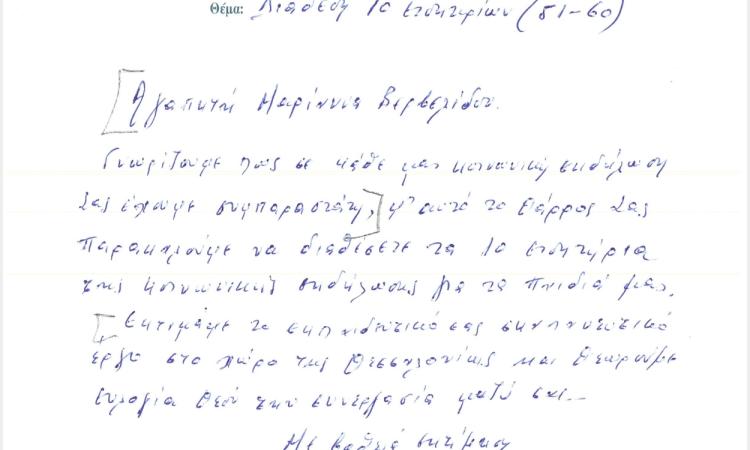 Θέμα: Διάθεση 10 εισητηρίων (51-60)
[Αγαπητή Μαρίννια Βερβερίδου.
Γνωρίζουμε πως σε κάθε μας κοινωνική εκδήλωση
Σας έχουμε συμπαραστάτη,] μ' αυτό το θάρρος Σας
παρακαλούμε να διαθέσετε τα 10 εισητήρια
της κοινωνικής εκδήλωσης για τα παιδιά μας.
[Εκτιμάμε το εκπαιδευτικό σας
έργο στο χώρο της Θεσσαλονίκης και θεωρούμε
ευλογία Θεού την συνεργασία μαζί σας.
Με βαθειά εκτίμηση